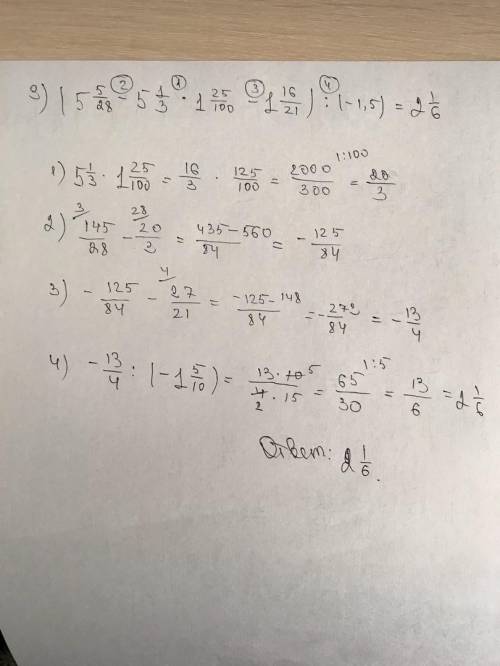 9) (5 5/28 - 5 1/3 · 1 25/100 - 1 16/21) : (-1,5) = 2 1/6
1) 5 1/3 · 1 25/100 = 16/3 · 125/100 = 2000/300 1:100 = 20/3
2) 3/ 145/28 - 28/ 20/3 = 435-560/84 = - 125/84
3) - 125/84 - 4/ 27/21 = -125-148/84 = - 273/84 = - 13/4
4) - 13/4 : (-1 5/10) = 13·10 5/4·15 2 = 65/30 1:5 = 13/6 = 2 1/6
Ответ: 2 1/6.